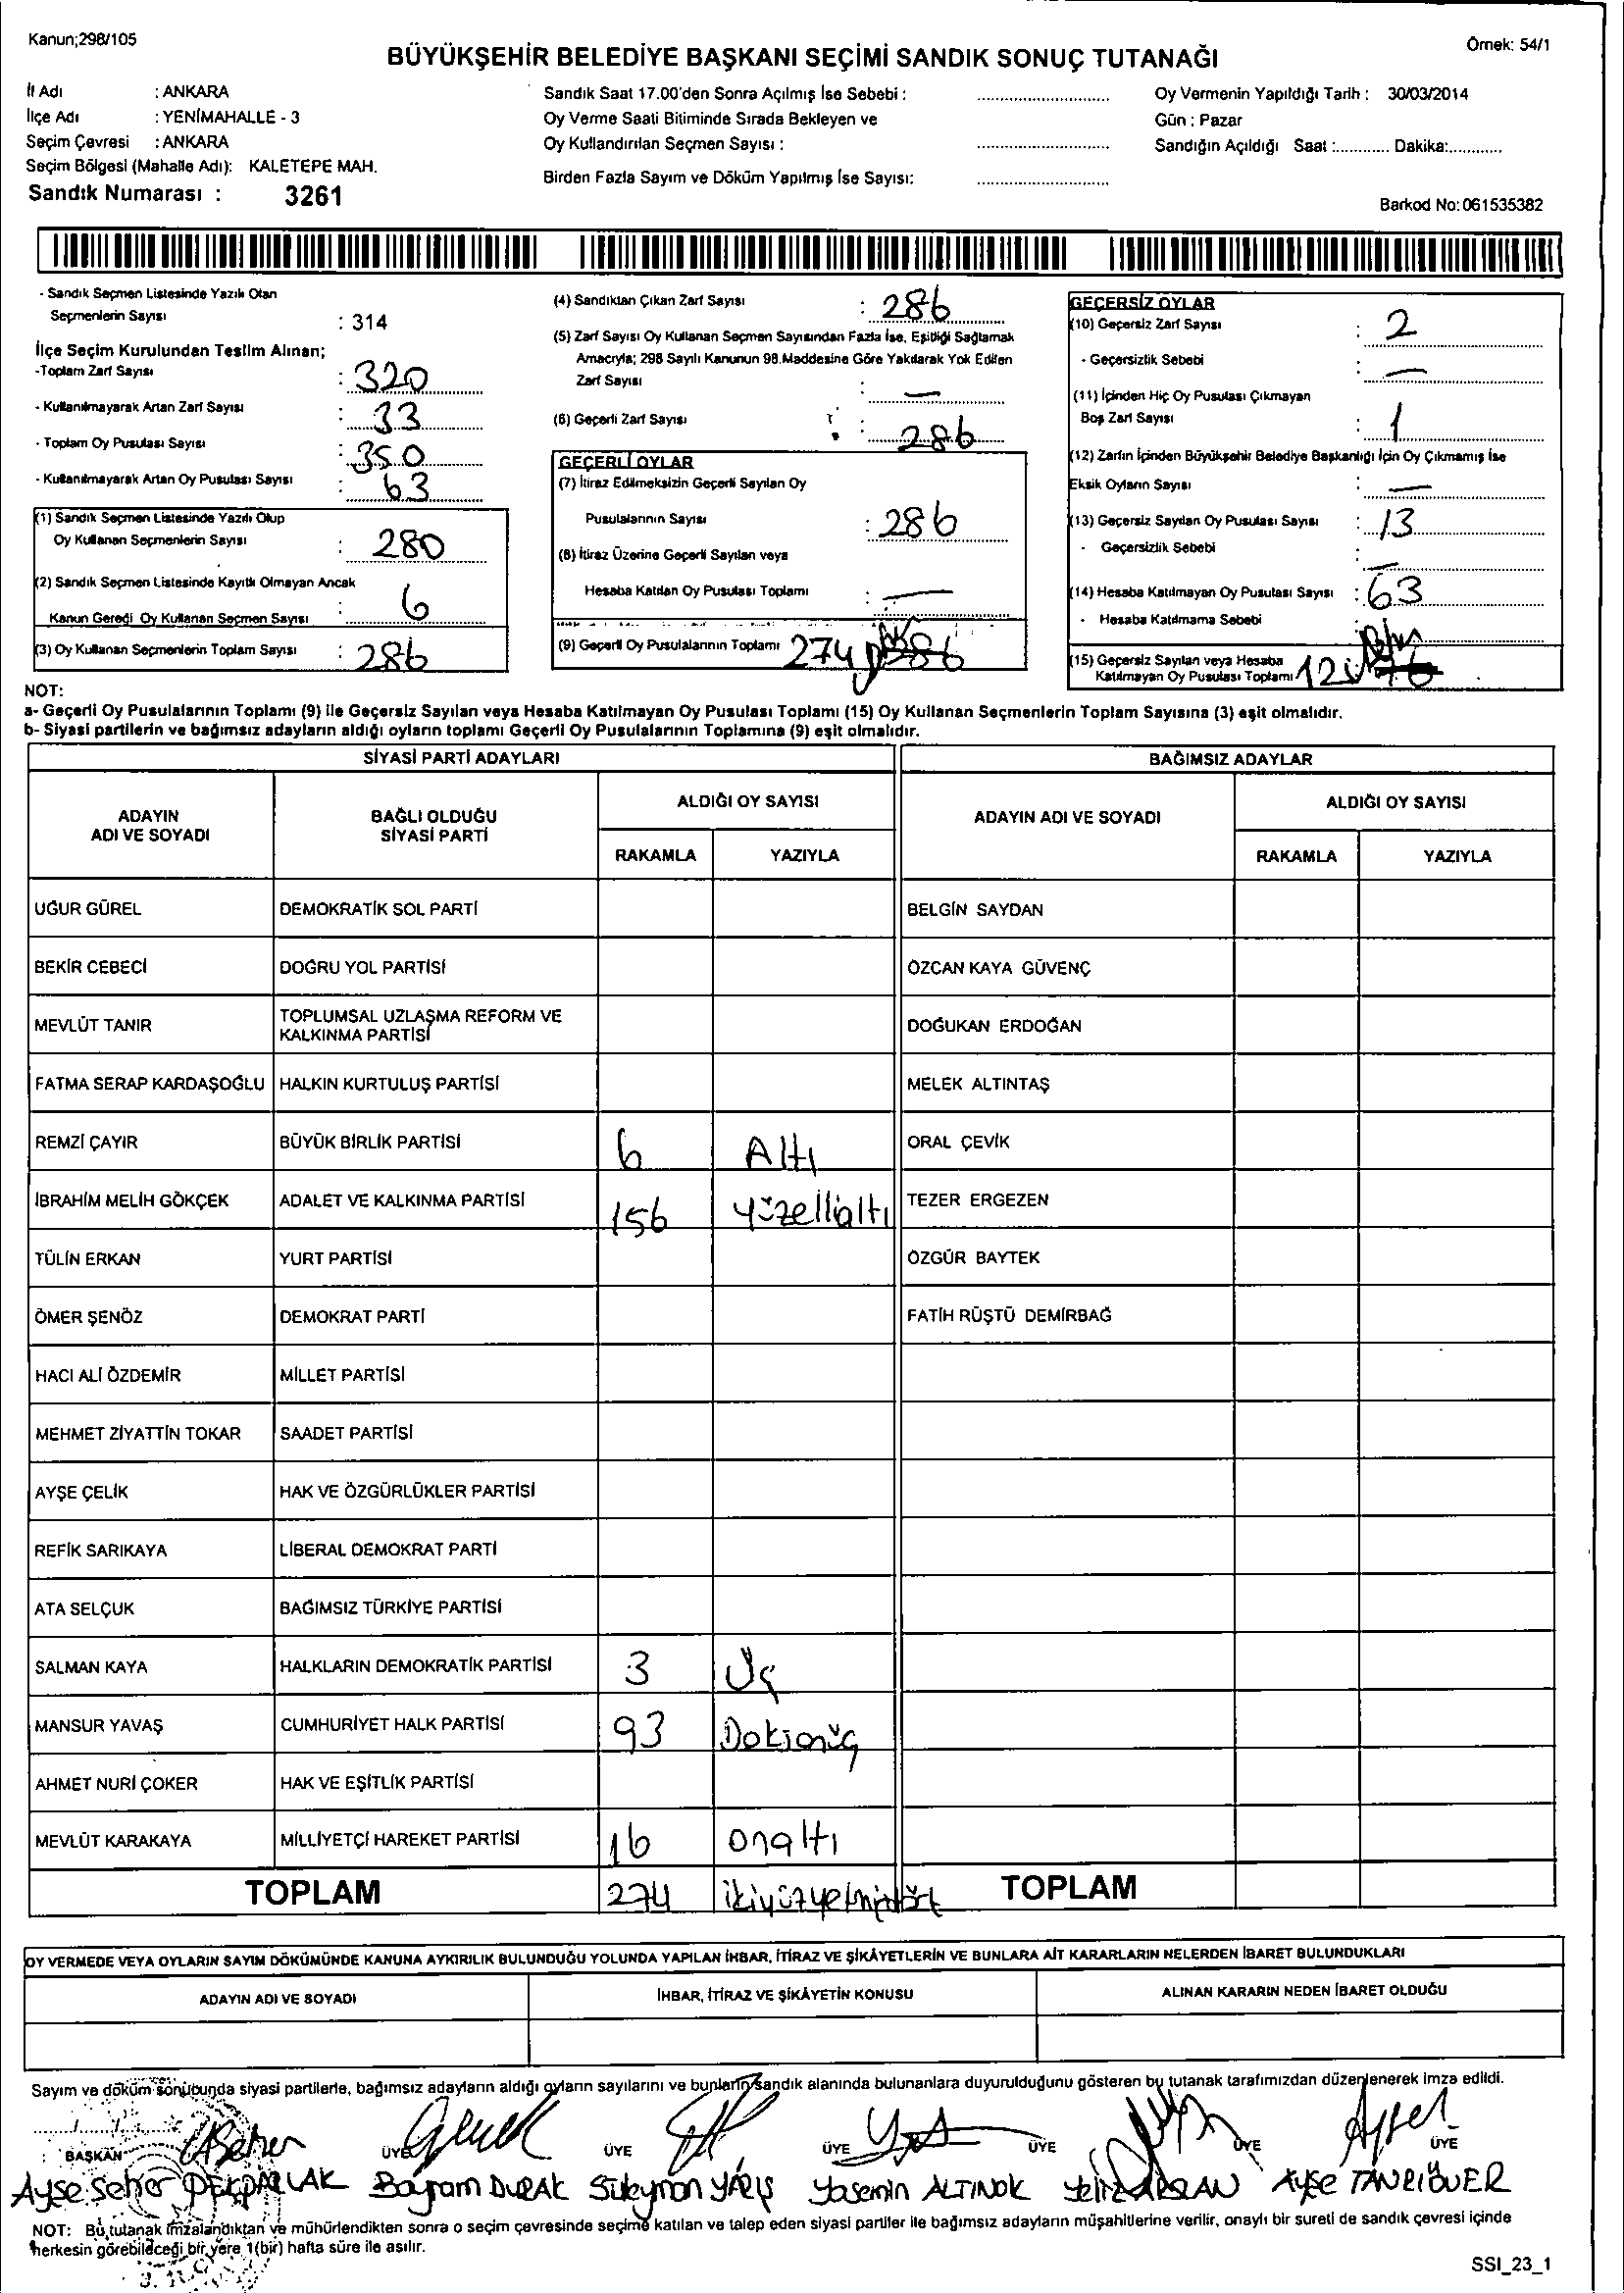 Kanun;298/105
Örnek: 54/1
BÜYÜKŞEHİR BELEDİYE BAŞKANI SEÇİMİ SANDIK SONUÇ TUTANAĞI
İl Adı : ANKARA
İlçe Adı : YENİMAHALLE - 3
Seçim Çevresi : ANKARA
Seçim Bölgesi (Mahalle Adı): KALETEPE MAH.
Sandık Numarası : 3261
Sandık Saat 17.00'den Sonra Açılmış İse Sebebi :
Oy Verme Saati Bitiminde Sırada Bekleyen ve
Oy Kullandırılan Seçmen Sayısı :
Birden Fazla Sayım ve Döküm Yapılmış İse Sayısı:
Oy Vermenin Yapıldığı Tarih : 30/03/2014
Gün : Pazar
Sandığın Açıldığı Saat :............ Dakika:............
Barkod No: 061535382
- Sandık Seçmen Listesinde Yazılı Olan
Seçmenlerin Sayısı : 314
İlçe Seçim Kurulundan Teslim Alınan;
-Toplam Zarf Sayısı : 320
- Kullanılmayarak Artan Zarf Sayısı : 33
- Toplam Oy Pusulası Sayısı : 350
- Kullanılmayarak Artan Oy Pusulası Sayısı : 63
(1) Sandık Seçmen Listesinde Yazılı Olup
Oy Kullanan Seçmenlerin Sayısı : 280
(2) Sandık Seçmen Listesinde Kayıtlı Olmayan Ancak
Kanun Gereği Oy Kullanan Seçmen Sayısı : 6
(3) Oy Kullanan Seçmenlerin Toplam Sayısı : 286
(4) Sandıktan Çıkan Zarf Sayısı : 286
(5) Zarf Sayısı Oy Kullanan Seçmen Sayısından Fazla İse, Eşitliği Sağlamak
Amacıyla; 298 Sayılı Kanunun 98.Maddesine Göre Yakılarak Yok Edilen
Zarf Sayısı : —
(6) Geçerli Zarf Sayısı : 286
GEÇERLİ OYLAR
(7) İtiraz Edilmeksizin Geçerli Sayılan Oy
Pusulalarının Sayısı : 286
(8) İtiraz Üzerine Geçerli Sayılan veya
Hesaba Katılan Oy Pusulası Toplamı : —
(9) Geçerli Oy Pusulalarının Toplamı 274
GEÇERSİZ OYLAR
(10) Geçersiz Zarf Sayısı : 2
- Geçersizlik Sebebi : —
(11) İçinden Hiç Oy Pusulası Çıkmayan
Boş Zarf Sayısı : 1
(12) Zarfın İçinden Büyükşehir Belediye Başkanlığı İçin Oy Çıkmamış İse
Eksik Oyların Sayısı : —
(13) Geçersiz Sayılan Oy Pusulası Sayısı : 13
- Geçersizlik Sebebi : —
(14) Hesaba Katılmayan Oy Pusulası Sayısı : 63
- Hesaba Katılmama Sebebi
(15) Geçersiz Sayılan veya Hesaba
Katılmayan Oy Pusulası Toplamı 12
NOT:
a- Geçerli Oy Pusulalarının Toplamı (9) ile Geçersiz Sayılan veya Hesaba Katılmayan Oy Pusulası Toplamı (15) Oy Kullanan Seçmenlerin Toplam Sayısına (3) eşit olmalıdır.
b- Siyasi partilerin ve bağımsız adayların aldığı oyların toplamı Geçerli Oy Pusulalarının Toplamına (9) eşit olmalıdır.
SİYASİ PARTİ ADAYLARI
BAĞIMSIZ ADAYLAR
ADAYIN ADI VE SOYADI
BAĞLI OLDUĞU SİYASİ PARTİ
ALDIĞI OY SAYISI
RAKAMLA YAZIYLA
ADAYIN ADI VE SOYADI
ALDIĞI OY SAYISI
RAKAMLA YAZIYLA
UĞUR GÜREL DEMOKRATİK SOL PARTİ BELGİN SAYDAN
BEKİR CEBECİ DOĞRU YOL PARTİSİ ÖZCAN KAYA GÜVENÇ
MEVLÜT TANIR TOPLUMSAL UZLAŞMA REFORM VE KALKINMA PARTİSİ DOĞUKAN ERDOĞAN
FATMA SERAP KARDAŞOĞLU HALKIN KURTULUŞ PARTİSİ MELEK ALTINTAŞ
REMZİ ÇAYIR BÜYÜK BİRLİK PARTİSİ 6 Altı ORAL ÇEVİK
İBRAHİM MELİH GÖKÇEK ADALET VE KALKINMA PARTİSİ 156 yüzellialtı TEZER ERGEZEN
TÜLİN ERKAN YURT PARTİSİ ÖZGÜR BAYTEK
ÖMER ŞENÖZ DEMOKRAT PARTİ FATİH RÜŞTÜ DEMİRBAĞ
HACI ALİ ÖZDEMİR MİLLET PARTİSİ
MEHMET ZİYATTİN TOKAR SAADET PARTİSİ
AYŞE ÇELİK HAK VE ÖZGÜRLÜKLER PARTİSİ
REFİK SARIKAYA LİBERAL DEMOKRAT PARTİ
ATA SELÇUK BAĞIMSIZ TÜRKİYE PARTİSİ
SALMAN KAYA HALKLARIN DEMOKRATİK PARTİSİ 3 Üç
MANSUR YAVAŞ CUMHURİYET HALK PARTİSİ 93
AHMET NURİ ÇOKER HAK VE EŞİTLİK PARTİSİ
MEVLÜT KARAKAYA MİLLİYETÇİ HAREKET PARTİSİ 16 onaltı
TOPLAM 274 ikiyüzyetmişdört TOPLAM
OY VERMEDE VEYA OYLARIN SAYIM DÖKÜMÜNDE KANUNA AYKIRILIK BULUNDUĞU YOLUNDA YAPILAN İHBAR, İTİRAZ VE ŞİKÂYETLERİN VE BUNLARA AİT KARARLARIN NELERDEN İBARET BULUNDUKLARI
ADAYIN ADI VE SOYADI İHBAR, İTİRAZ VE ŞİKÂYETİN KONUSU ALINAN KARARIN NEDEN İBARET OLDUĞU
Sayım ve döküm sonucunda siyasi partilerle, bağımsız adayların aldığı oyların sayılarını ve bunların sandık alanında bulunanlara duyurulduğunu gösteren bu tutanak tarafımızdan düzenlenerek imza edildi.
BAŞKAN ÜYE ÜYE ÜYE ÜYE ÜYE ÜYE
Ayşe Seher PEKPARLAK Bayram DURAK Süleyman YARIŞ Yasemin ALTINOK Yeliz ARSLAN Ayşe TANRIÖVER
NOT: Bu tutanak imzalandıktan ve mühürlendikten sonra o seçim çevresinde seçime katılan ve talep eden siyasi partiler ile bağımsız adayların müşahitlerine verilir, onaylı bir sureti de sandık çevresi içinde
herkesin görebileceği bir yere 1(bir) hafta süre ile asılır.
SSI_23_1